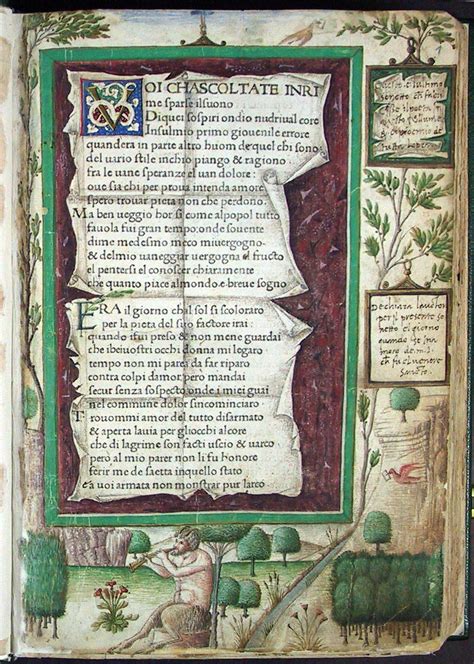 VOI CHASCOLTATE INRI
me sparse ilsuono
Diquei sospiri ondio nudriual core
Insulmio primo giouenile errore
quandera in parte altro huom da quel chi sono
del uario stile inchio piango & ragiono
fra le uane speranze el uan dolore:
oue sia chi per proua intenda amore
spero trouar pieta non che perdono.
Ma ben ueggio hor si come alpopol tutto
fauola fui gran tempo: onde souente
dime medesmo meco miuergogno:
& delmio uaneggiar uergogna el fructo
el pentersi el conoscer chiaramente
che quanto piace almondo e breue sogno
ERA il giorno chal sol si scoloraro
per la pieta del suo factore irai:
quando ifui preso & non mene guardai
che ibeiuostri occhi donna mi legaro
tempo non mi parea da far riparo
contra colpi damor, pero mandai
secur senza sospecto, onde i miei guai
nel commune dolor sincominciaro.
Trouommi amor del tutto disarmato
& aperta lauia per gliocchi al core
che di lagrime son facti uscio & uarco
pero al mio parer non li fu honore
ferir me de saetta inquello stato
e a uoi armata non monstrar pur larco
1
Questo e lultimo
sonetto
Dechiara lauctor
per il presente so
netto el giorno
quando se Inna
moro de m. L.
ch fu el uenere
sancto.